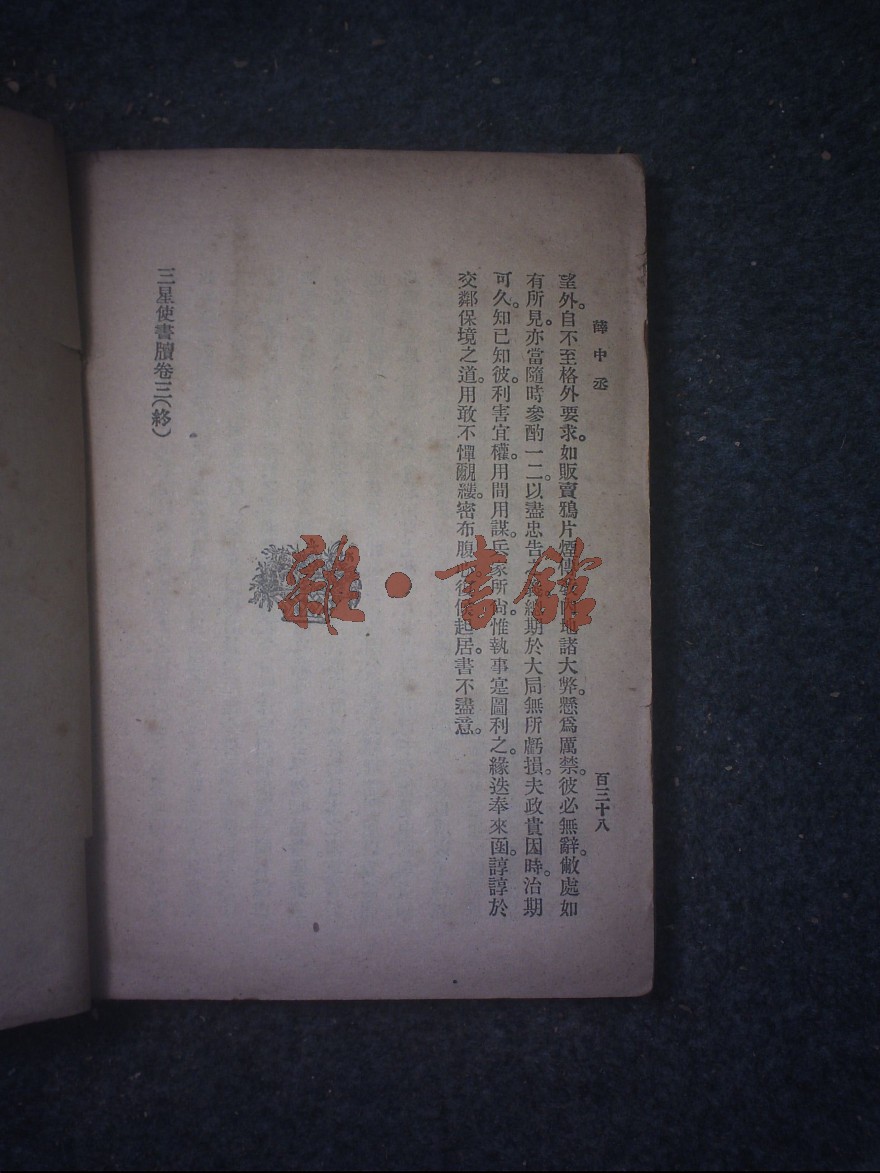 薛中丞
百三十八
望外。自不至格外要求。如販賣鴉片煙傳內地諸大弊。懸爲厲禁。彼必無辭。敝處如
有所見。亦當隨時參酌一二。以盡忠告之總期於大局無所虧損。夫政貴因時。治期
可久。知已知彼。利害宜權。用間用謀。兵家所尚。惟執事寔圖利之。緣迭奉來函。諄諄於
交鄰保境之道。用敢不憚覼縷。密布腹起居。書不盡意。
三星使書牘卷三(終)
雜·書館